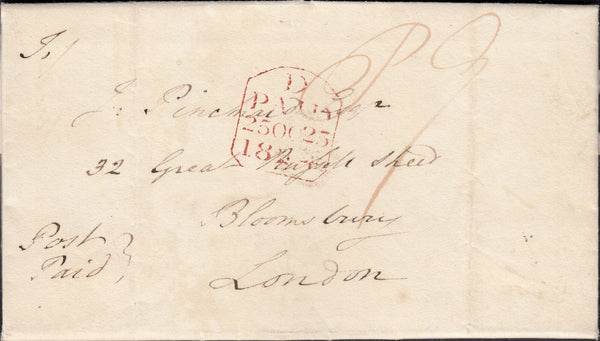 To/
J. Pinchard Esqr
32 Great Russell Street
Bloomsbury
London
Post
Paid
D
PAID
25 OC 25
18